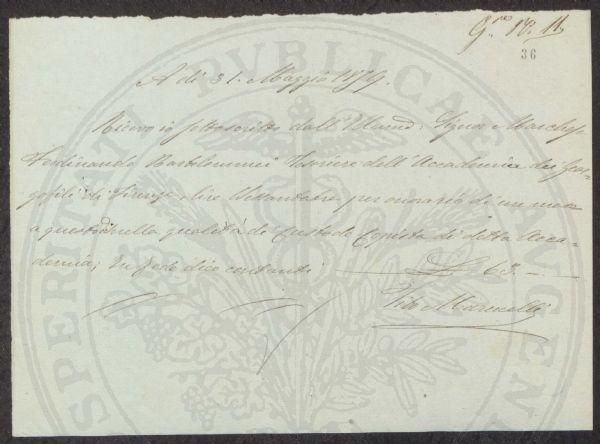 G.re N. 11
36
A dì 31. Maggio 1879.
Ricevo io sottoscritto dall' Illmo. Signor Marchese
Ferdinando Bartolommei Tesoriere dell' Accademia dei Geor-
gofili di Firenze lire Sessantatre, per onorario di un mese
a questo dì nella qualità di Custode Copista di detta Acca-
demia; In fede dico contanti £ 63. -
Vito Marinelli
PROSPERITATI PVBLICAE AVGEN